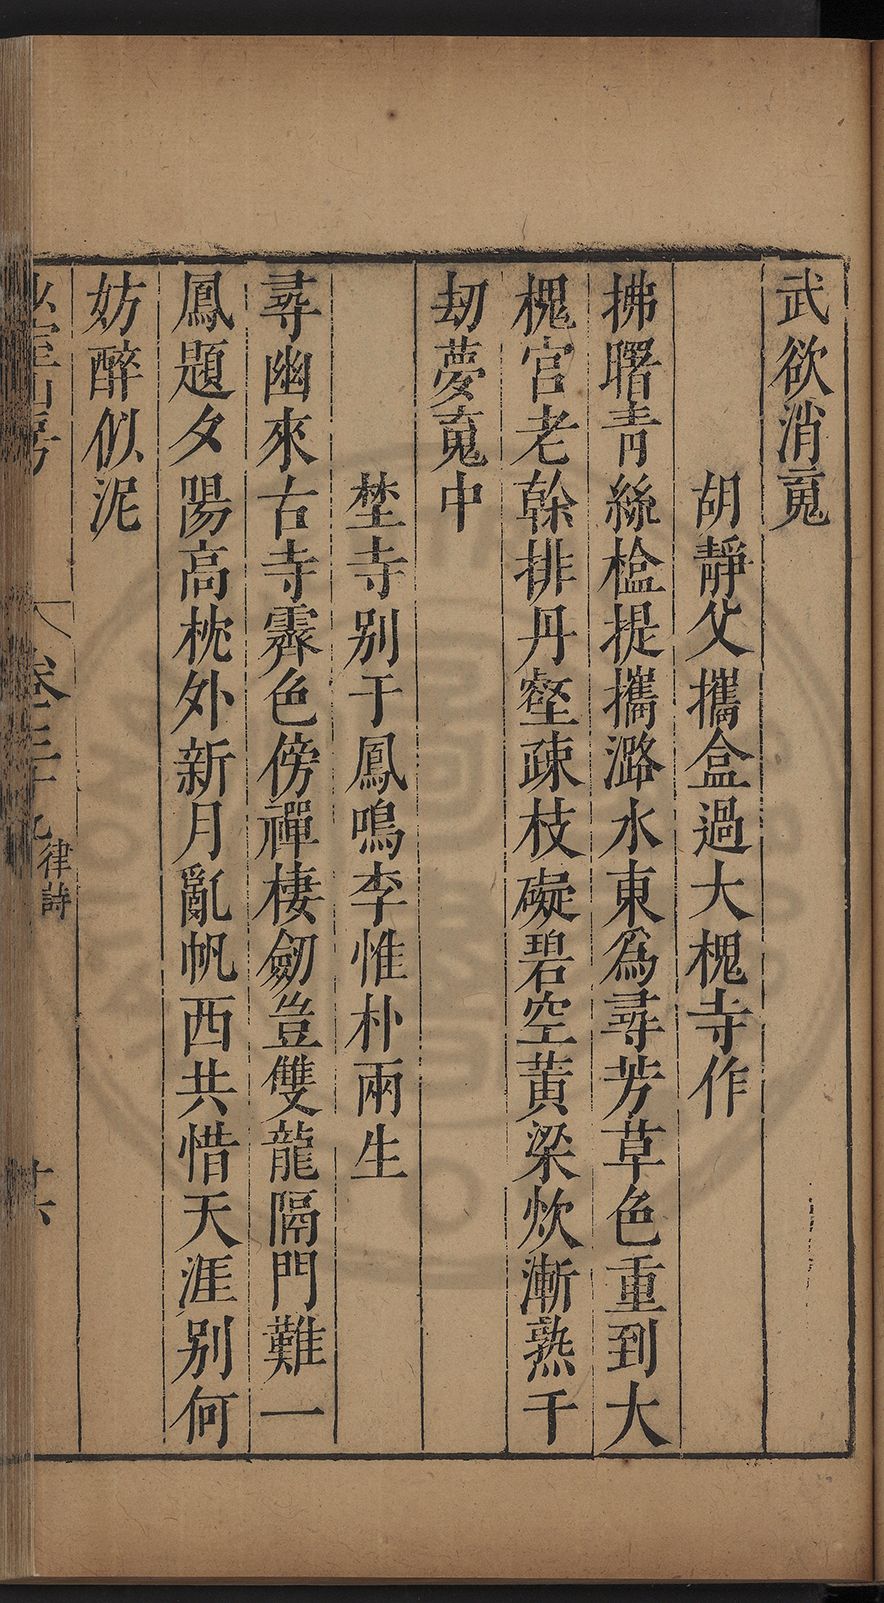 武欲消䰟
胡靜父攜盒過大槐寺作
拂曙青絲榼提攜潞水東爲尋芳草色重到大
槐官老榦排丹壑疎枝礙碧空黃粱炊漸熟千
刼夢䰟中
埜寺别于鳳鳴李惟朴兩生
尋幽來古寺霽色傍禪棲劒豈雙龍隔門難一
鳳題夕陽高枕外新月亂帆西共惜天涯别何
妨醉似泥
室山房
卷三十九
律詩
廿六